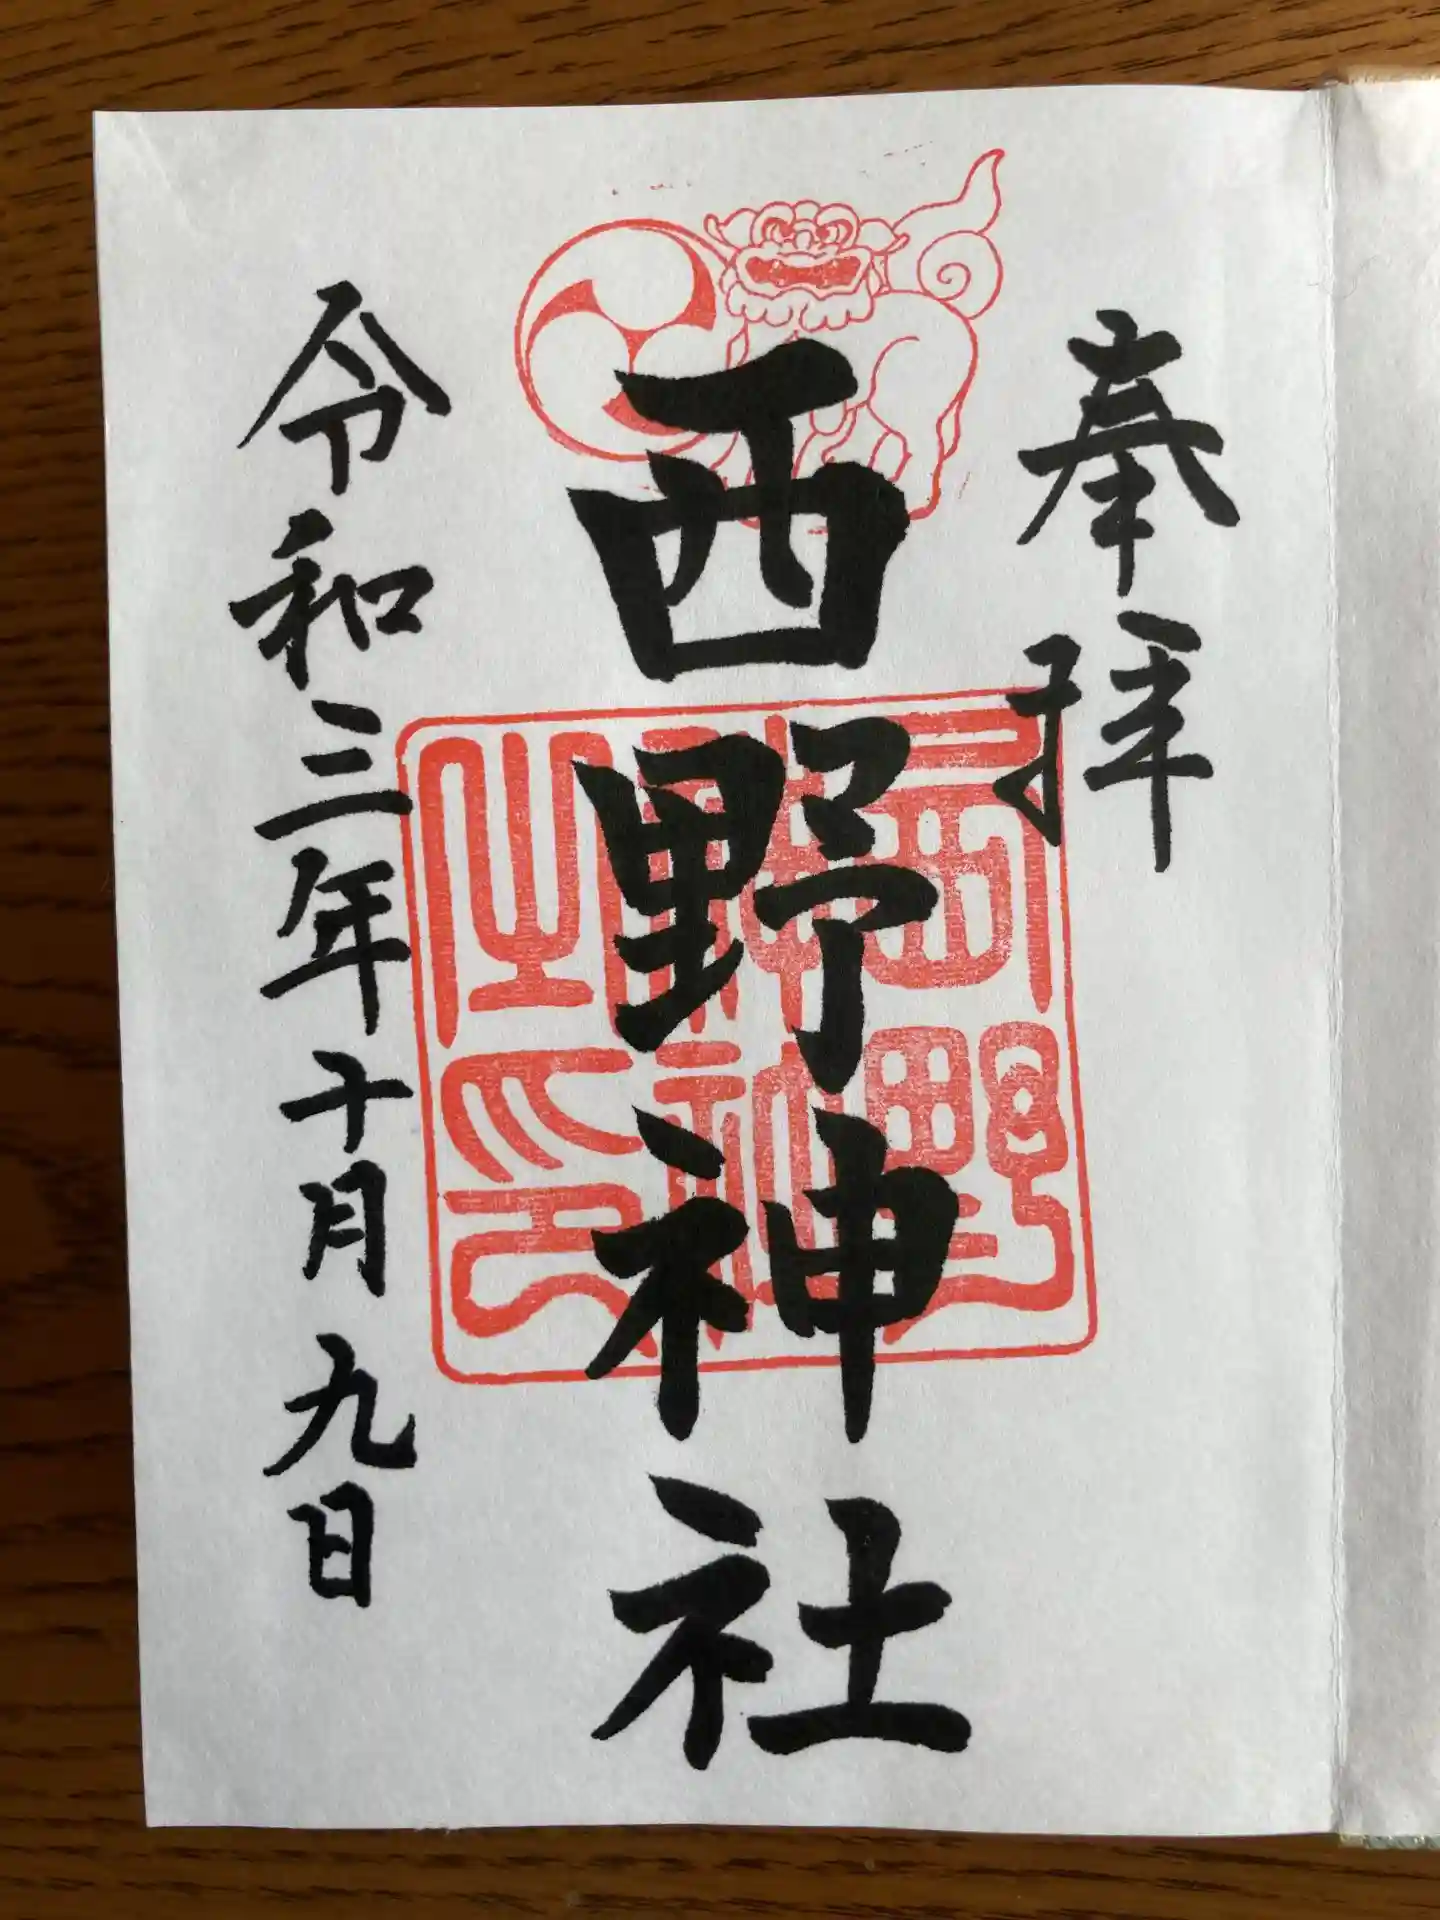 奉拝
西野神社
令和三年十月九日
西野神社之印